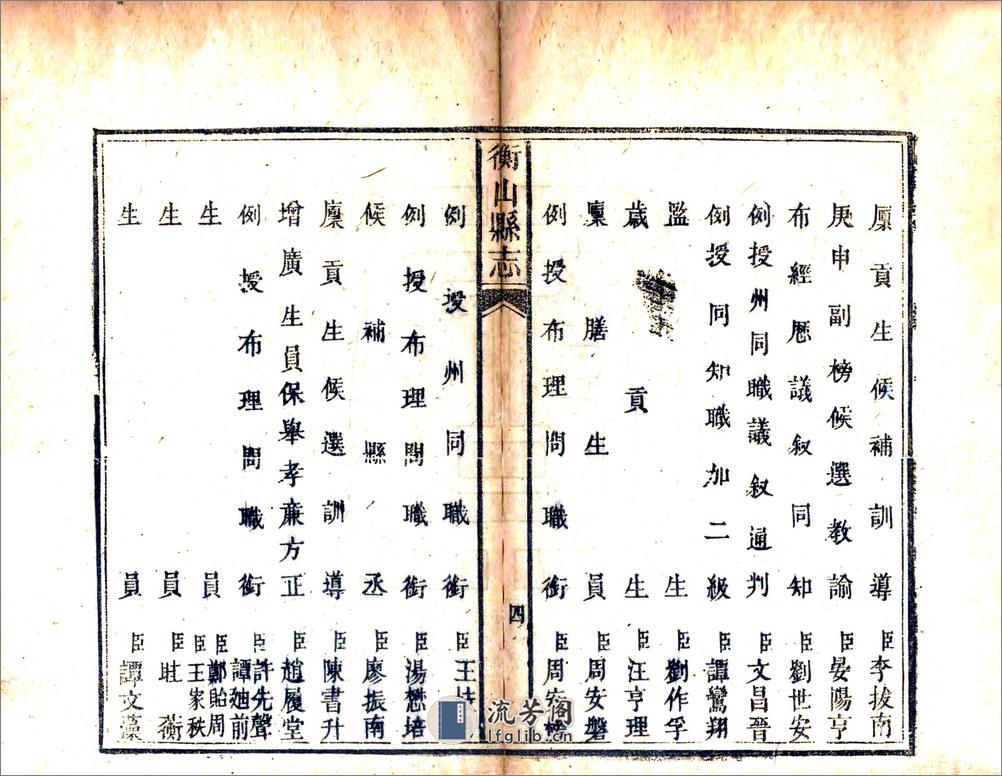 廪貢生候補訓導臣李拔南
庚申副榜候選教諭臣晏陽亨
布經歷議叙同知臣劉世安
例授州同職議叙通判臣文昌晉
例授同知職加二級臣譚鸞翔
監生臣劉作孚
歲貢生臣汪亨理
廩膳生員臣周安磐
例授布理問職銜臣周安
衡山縣志
四
例授州同職銜臣王
例授布理問職銜臣湯懋培
候補縣丞臣廖振南
廩貢生候選訓導臣陳書升
增廣生員保舉孝廉方正臣趙履堂
例授布理問職銜臣許先聲
臣譚廸前
生員臣鄭貽周
臣王家秩
生員臣 蘅
生員臣譚文藻
流芳阁
lfglib.cn